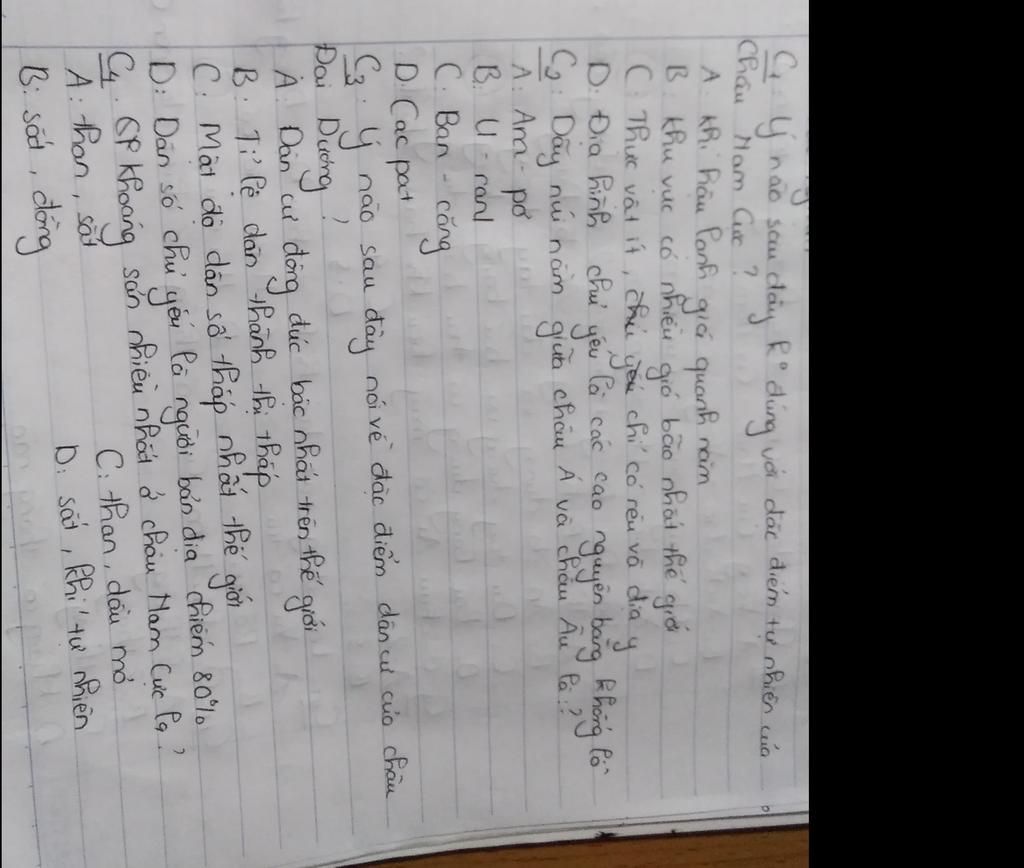 C1: Ý nào sau đây k° đúng với đặc điểm tự nhiên của
Châu Nam Cực?
A. Khí hậu lạnh giá quanh năm
B. Khu vực có nhiều gió bão nhất thế giới
C. Thực vật ít, chỉ có rêu và địa y
D. Địa hình chủ yếu là các cao nguyên băng khổng lồ
C2: Dãy núi nằm giữa châu Á và châu Âu là:?
A: An-pơ
B. U-ran
C. Ban-căng
D. Cac pat
C3. Ý nào sau đây nói về đặc điểm dân cư của châu
Đại Dương?
A. Dân cư đông đúc bậc nhất trên thế giới
B. Tỉ lệ dân thành thị thấp
C. Mật độ dân số thấp nhất thế giới
D: Dân số chủ yếu là người bản địa chiếm 80%
C4. khoáng sản nhiều nhất ở châu Nam Cực là?
A: than, sắt
C: than, dầu mỏ
B: sắt, đồng
D: sắt, khí tự nhiên